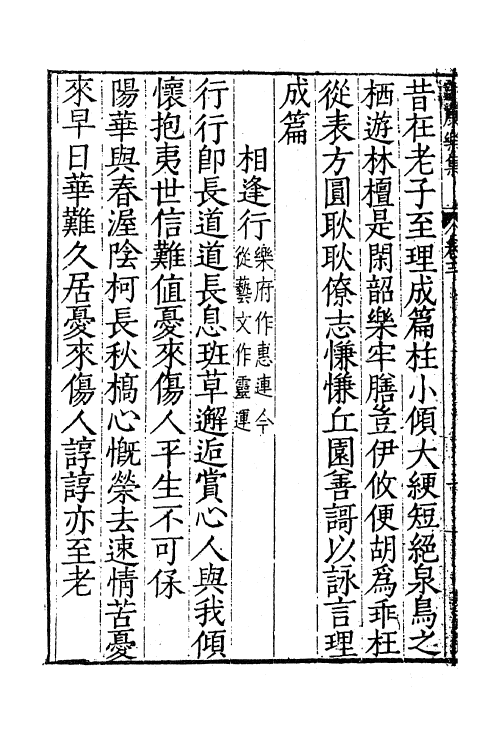 昔在老子至理成篇柱小傾大綆短絕泉鳥之
栖遊林檀是閑韶樂牢膳豈伊攸便胡為乖枉
從表方圓耿耿僚志慊慊丘園善謌以詠言理
成篇
相逢行樂府作惠連今
從藝文作靈運
行行即長道道長息班草邂逅賞心人與我傾
懷抱夷世信難值憂來傷人平生不可保
陽華與春渥陰柯長秋槁心慨榮去速情苦憂
來早日華難久居憂來傷人諄諄亦至老